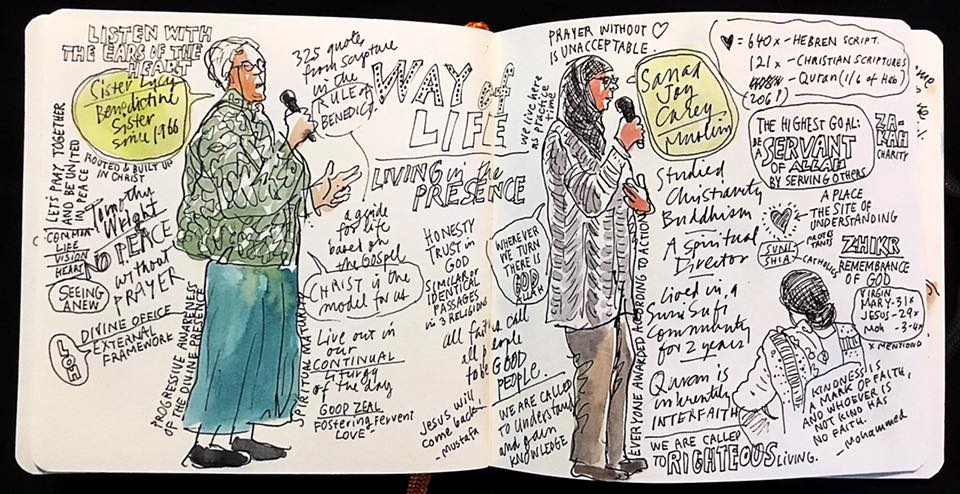 LISTEN WITH
THE EARS OF THE
HEART
Sister Lucy
Benedictine
Sister
Since 1966
ROOTED & BUILT UP
IN CHRIST
LET'S PRAY TOGETHER
AND BE UNITED
IN PEACE
Timothy
Wright
NO PEACE
without
PRAYER
COMMON
LIFE
VISION
HEART
SEEING
ANEW
DIVINE OFFICE
EXTERNAL
FRAMEWORK
PROGRESSIVE AWARENESS
OF THE DIVINE PRESENCE
325 quotes
from scripture
in the
RULE of
BENEDICT.
WAY of
LIFE
LIVING in the
PRESENCE
a guide
for life
based on
the Gospel
CHRIST is the
model for us
SPIRITUAL MATURITY
Live out in
our
CONTINUAL
liturgy
of the day
GOOD ZEAL
Fostering fervent
LOVE-
HONESTY
TRUST in
GOD
SIMILAR OR
IDENTICAL
PASSAGES
in 3 RELIGIONS
all
all
to be
Jesus will
come back.
-Mustafa
we live here
as practice
time
WHEREVER
WE TURN
THERE IS
GOD
ALLAH
us call
people
GOOD
PEOPLE.
WE ARE CALLED
to understand
and gain
KNOWLEDGE
PRAYER WITHOUT ♡
IS UNACCEPTABLE.
Sanad
Joy
Carey
Muslim
Studied
Christianity
Buddhism
A Spiritual
Director
Lived in a
Sufi
Community
for 2 years
Quran is
inherently
INTERFAITH
EVERYONE AWARDED ACCORDING TO ACTION
WE ARE CALLED
TO RIGHTEOUS LIVING.
♥ = 640x - HEBREW SCRIPT.
121x - CHRISTIAN SCRIPTURES
- Quran (1/6 of Heb)
(206!)
THE HIGHEST GOAL:
BE
A SERVANT
OF ALLAH
BY SERVING OTHERS
ZA-
KAH
CHARITY
A PLACE
THE SITE OF
UNDERSTANDING
SUNNI
SHIA
PROTES
TANTS
CATHOLICS
ZHIKR
REMEMBRANCE
OF GOD
VIRGIN
MARY-31x
JESUS-29x
Moh -3-4x
x MENTIOND
KINDNESS IS
A MARK OF FAITH,
AND WHOEVER IS
NOT KIND HAS
NO FAITH.
-Mohammed